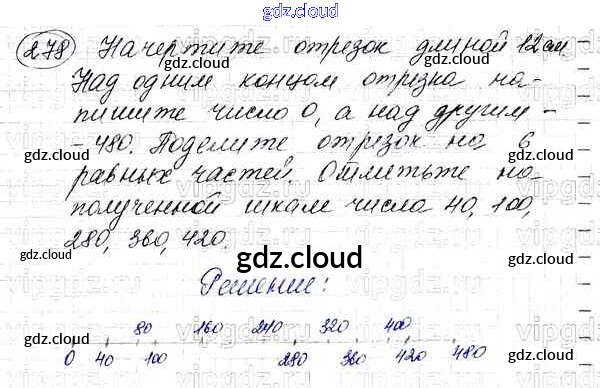 gdz.cloud
278 Начертите отрезок длиной 12 см
Над одним концом отрезка на-
пишите число 0, а над другим -
- 480. Поделите отрезок на 6
равных частей. Отметьте на
полученной шкале числа 40, 100,
280, 360, 420.
Решение:
80 160 240 320 400
0 40 100 280 360 420 480
gdz.cloud
gdz.cloud
gdz.cloud
gdz.cloud
gdz.cloud
gdz.cloud
gdz.cloud
gdz.cloud
gdz.cloud
gdz.cloud